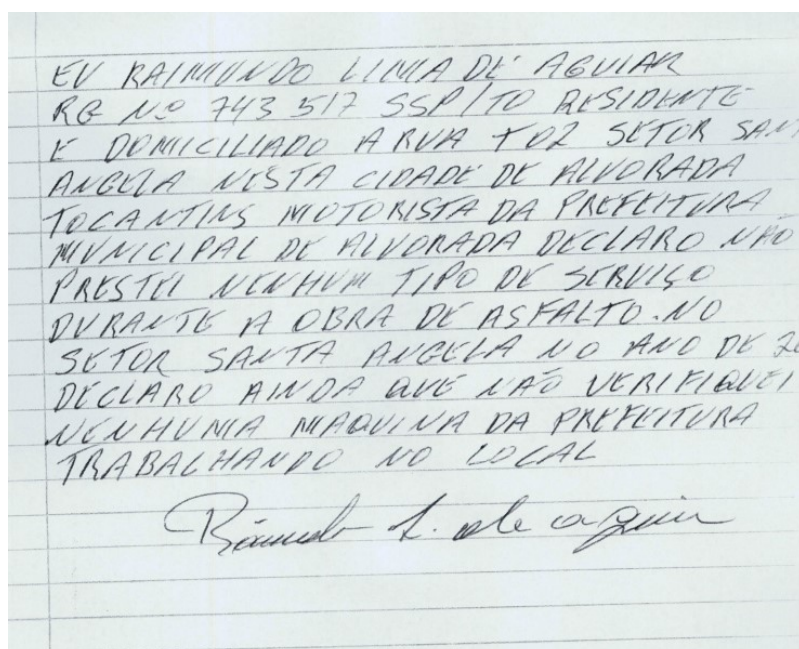 EU RAIMUNDO LIMA DE AGUIAR
RG Nº 743 517 SSP/TO RESIDENTE
E DOMICILIADO A RUA T 02 SETOR SANT
ANGELA NESTA CIDADE DE ALVORADA
TOCANTINS MOTORISTA DA PREFEITURA
MUNICIPAL DE ALVORADA DECLARO NÃO
PRESTEI NENHUM TIPO DE SERVIÇO
DURANTE A OBRA DE ASFALTO. NO
SETOR SANTA ANGELA NO ANO DE 20
DECLARO AINDA QUE NÃO VERIFIQUEI
NENHUMA MAQUINA DA PREFEITURA
TRABALHANDO NO LOCAL
L. de aguiar